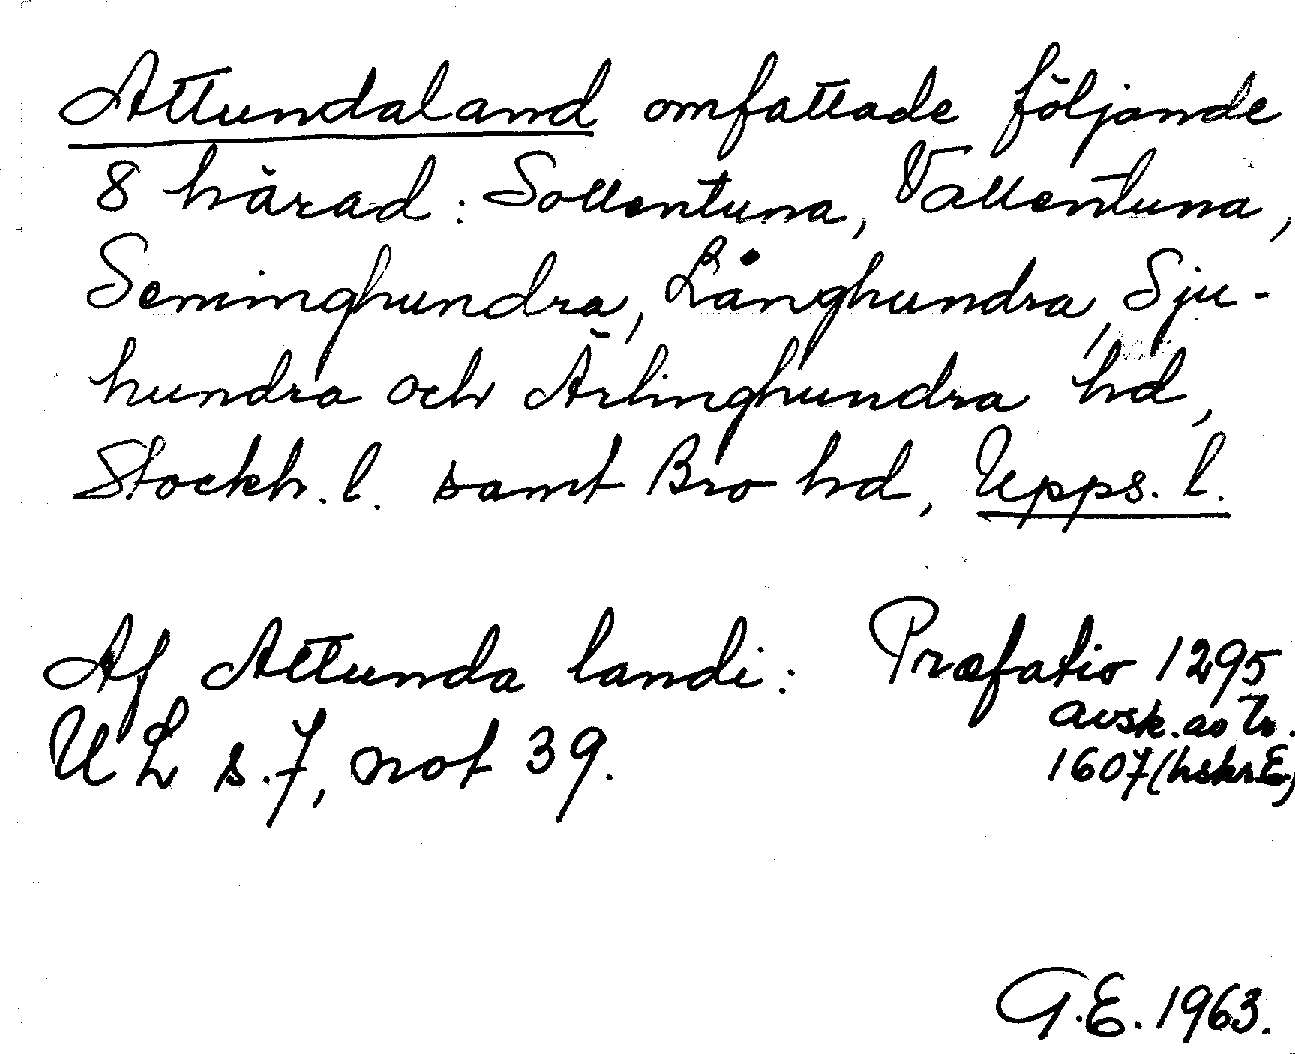 Attundaland omfattade följande
8 härad: Sollentuna, Vallentuna,
Seminghundra, Långhundra, Sju-
hundra och Ärlinghundra hd,
Stockh. l. samt Bro hd, Upps. l.
Af Attunda landi: Præfatio 1295
avsk. av tr.
UL s. 7, not 39.
1607 (hskr E)
G.E. 1963.